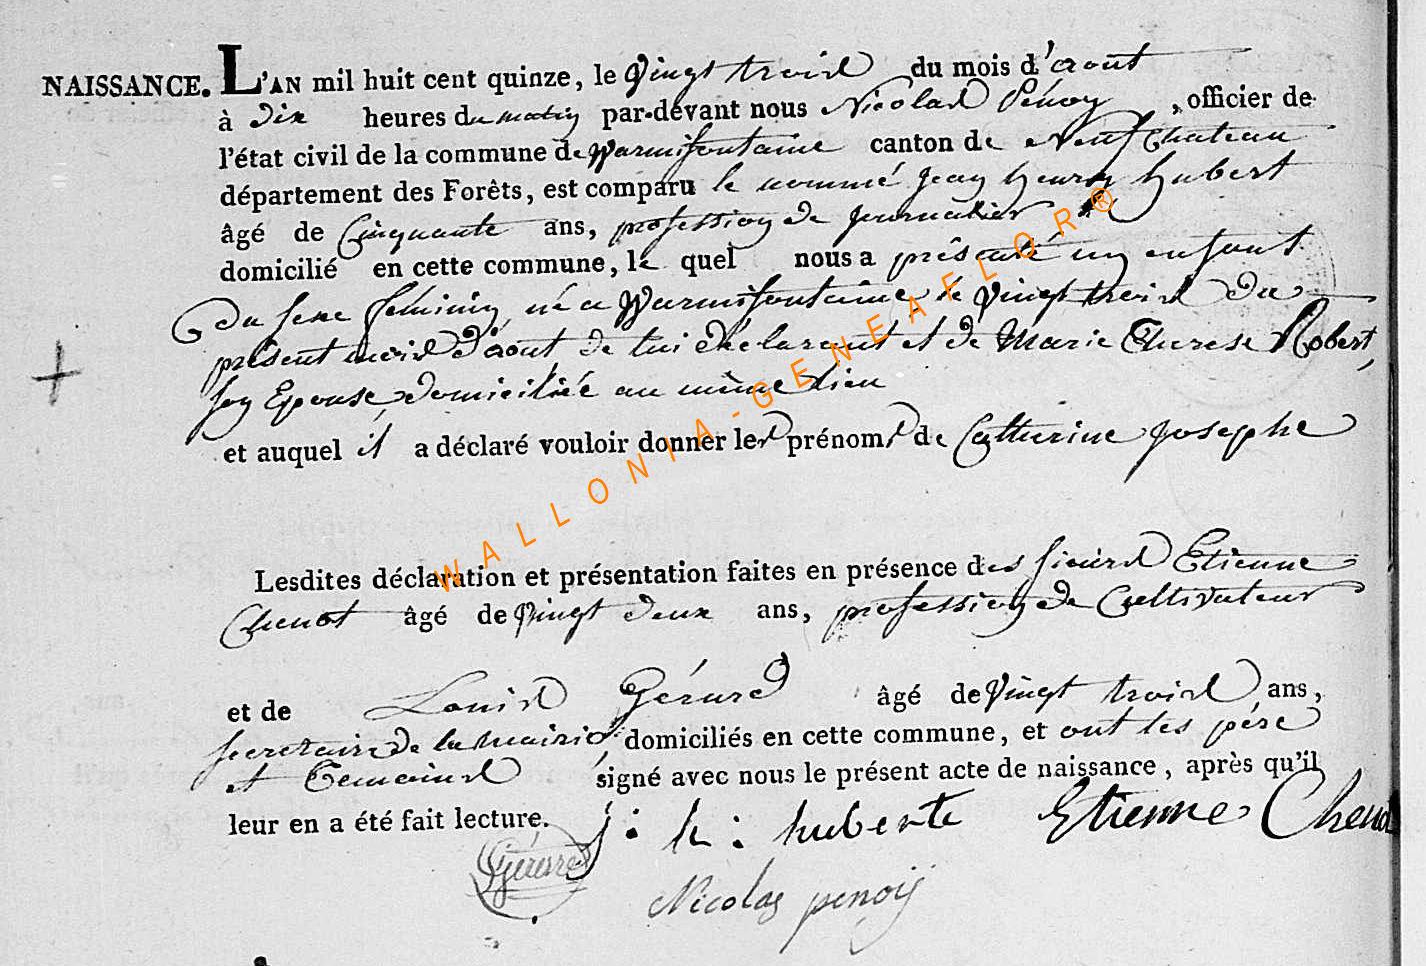 NAISSANCE. L'AN mil huit cent quinze, le Vingt trois du mois d'aout
à dix heures du matin par-devant nous Nicolas Penoy, officier de
l'état civil de la commune de Warmifontaine canton de Neufchateau
département des Forêts, est comparu le nommé Jean henry hubert
âgé de Cinquante ans, profession de journalier
domicilié en cette commune, le quel nous a présenté un enfant
du sexe féminin, né a Warmifontaine le Vingt trois du
présent mois d'aout de lui déclarant et de Marie Therese Robert,
son Epouse domiciliée au même lieu
et auquel il a déclaré vouloir donner les prénoms de Catherine josephe
Lesdites déclaration et présentation faites en présence des sieurs Etienne
Chenot âgé de Vingt deux ans, profession de Cultivateur
et de Louis Gérard âgé de Vingt trois ans,
secretaire de la mairie, domiciliés en cette commune, et ont les père
et temoins signé avec nous le présent acte de naissance, après qu'il
leur en a été fait lecture. j: h: huberte Etienne Chenot
Gérard
Nicolas penoij
WALLONIA-GENEAFLOR®